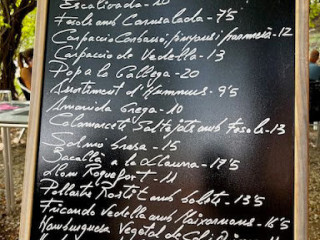 Escalivada - 10
Fesols amb Cansalada - 7'5
Carpaccio Carbassó, pinyons i parmesà - 12
Carpaccio de Vedella - 13
Pop a la Gallega - 20
Assortiment d'Hummus - 9'5
Amanida Grega - 10
Calamarcets Saltejats amb Fesols - 13
Salmó brasa - 15
Bacallà a la Llauna - 17'5
Llom Roquefort - 11
Pollastre Rostit amb bolets - 13'5
Fricandó Vedella amb Moixernons - 16'5
Hamburguesa Vegetal de